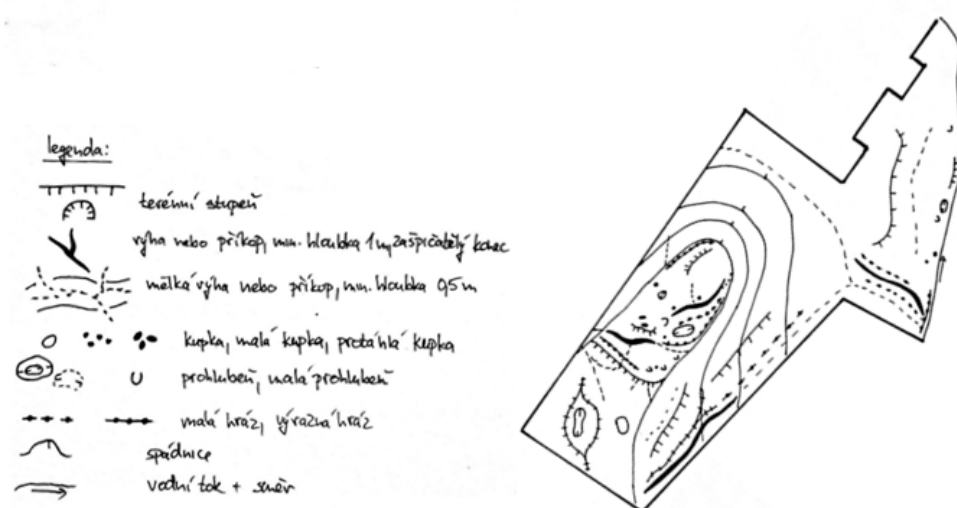 legenda:
terénní stupeň
rýha nebo příkop, min. hloubka 1 m, zašpičatělý konec
mělká rýha nebo příkop, min. hloubka 0,5 m
kupka, malá kupka, protáhlá kupka
prohlubeň, malá prohlubeň
malá hráz, výrazná hráz
spádnice
vodní tok + směr